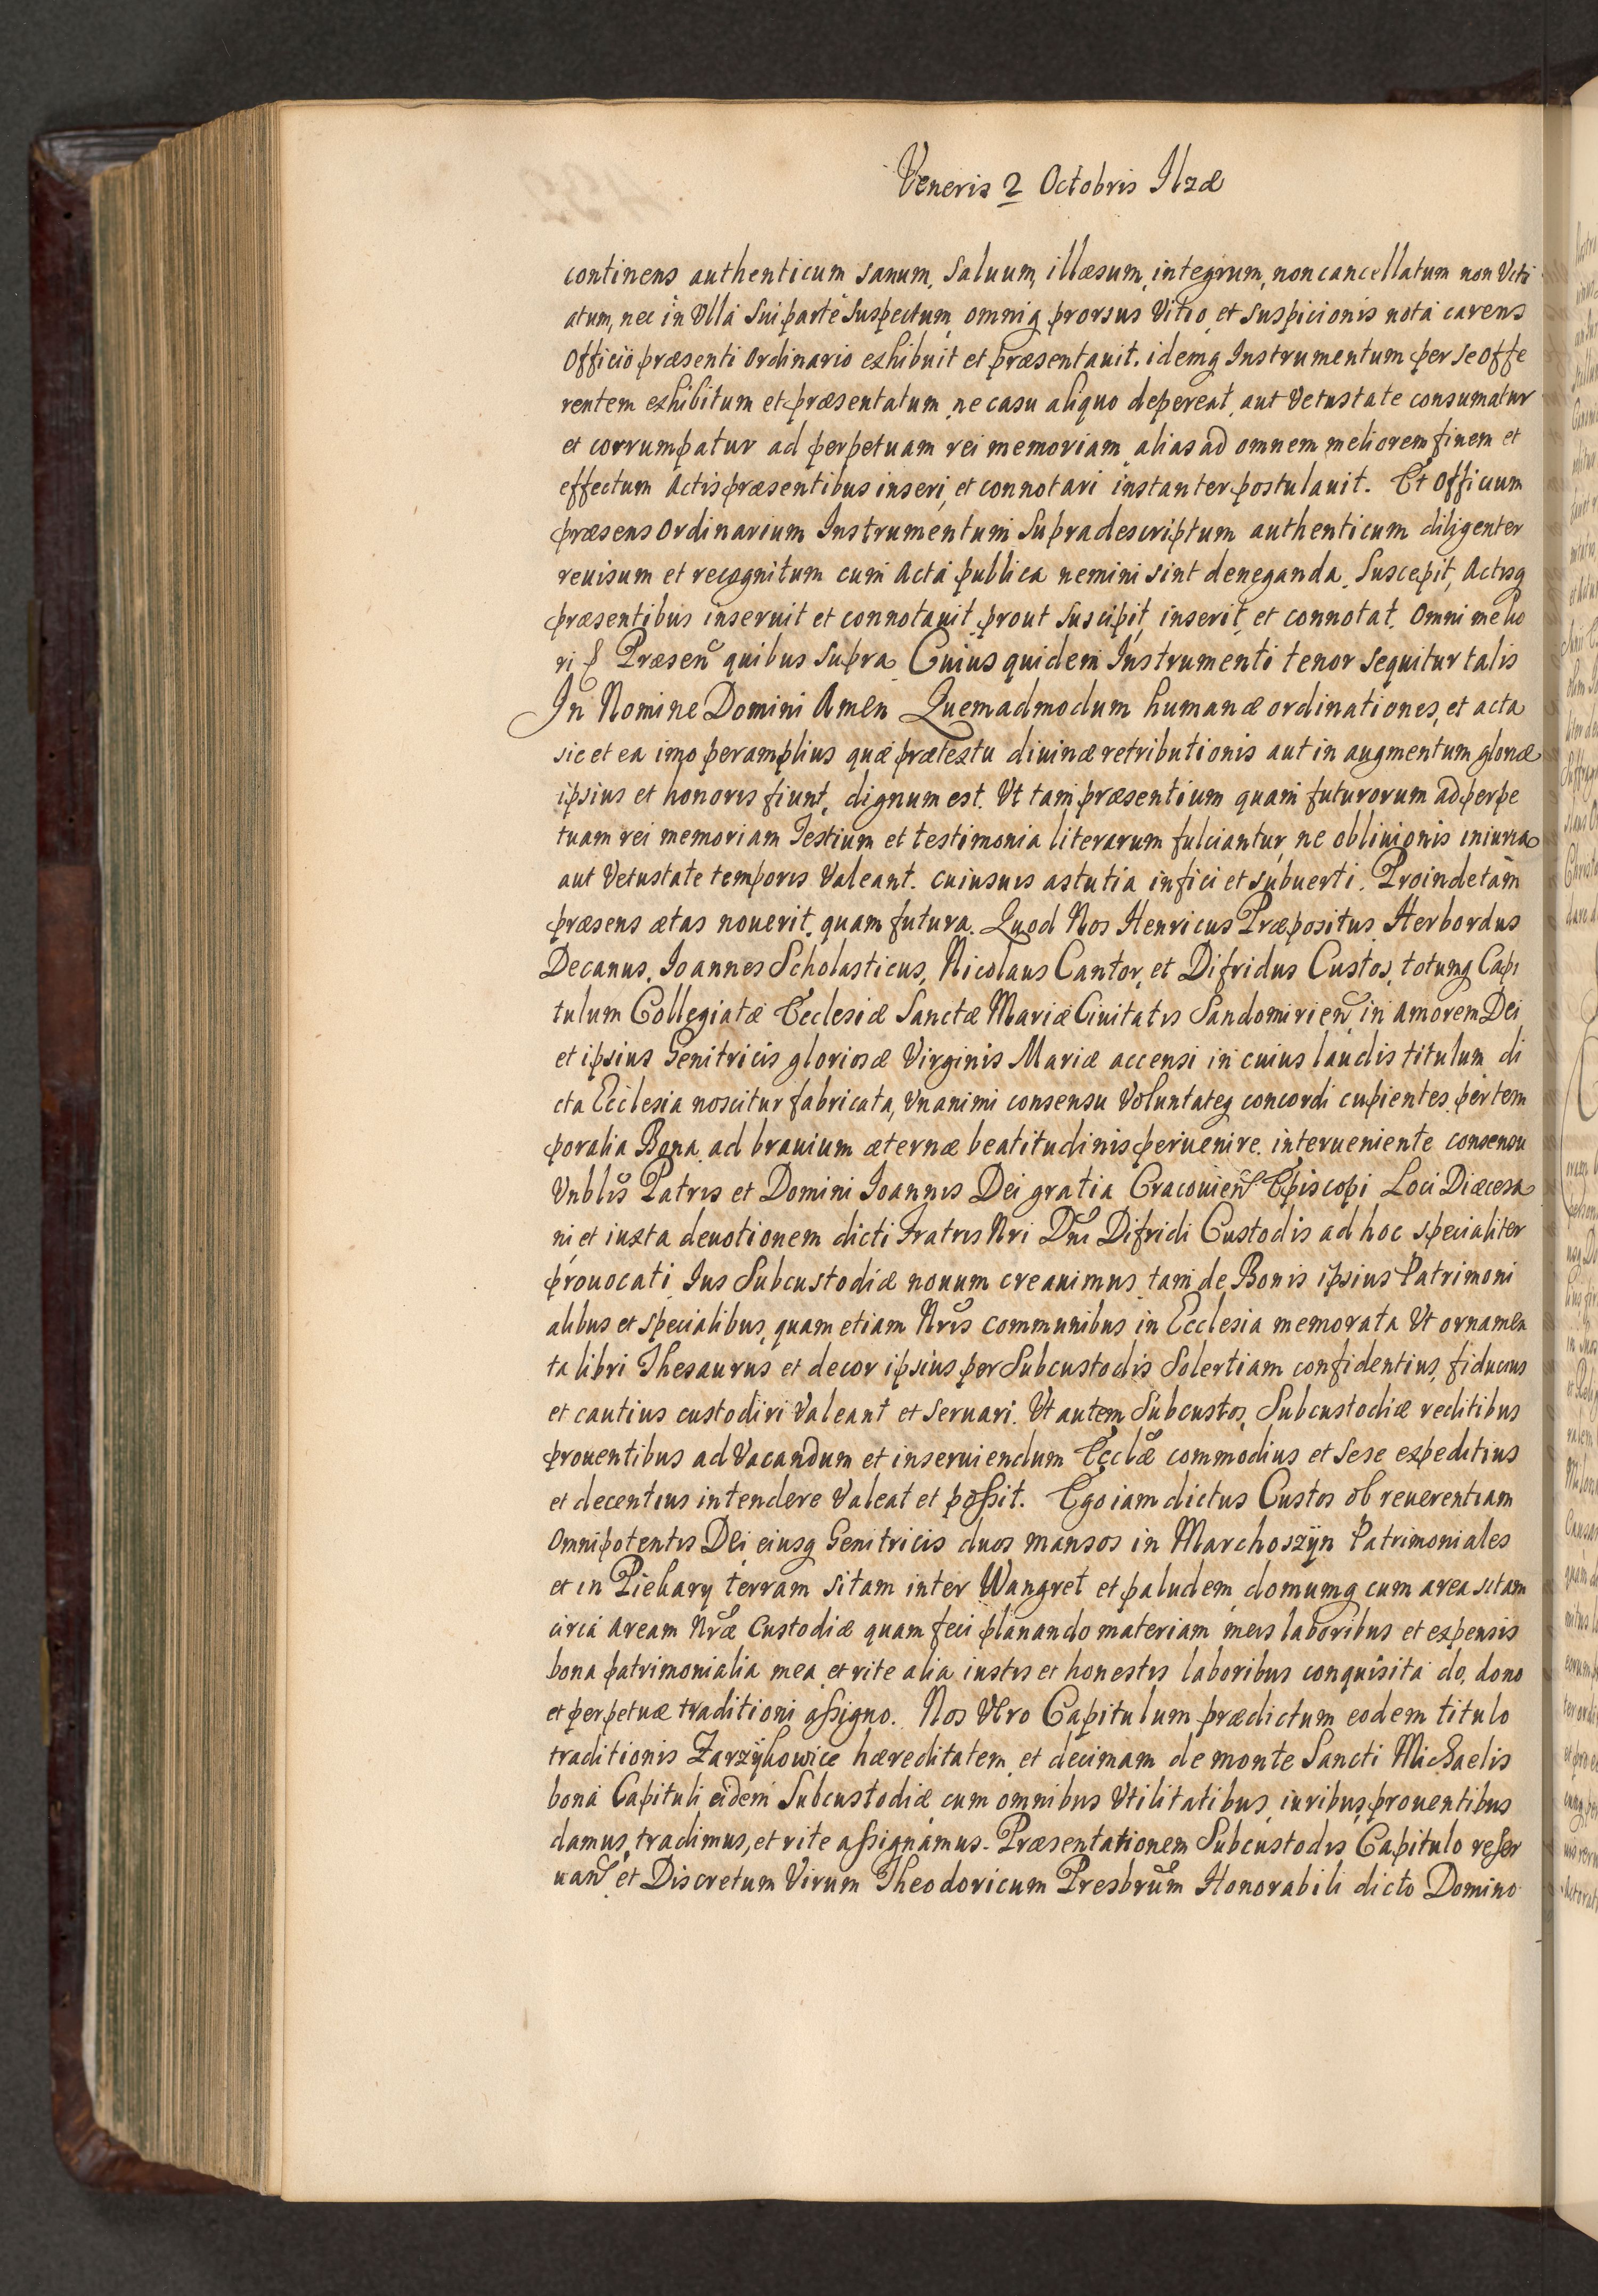 Veneris 2 Octobris Ilzæ
continens authenticum sanum, saluum, illæsum, integrum, non cancellatum non Viti
atum, nec in Vlla sui parte suspectum, omniq prorsus Vitio, et suspicionis nota carens
Officio præsenti Ordinario exhibuit et præsentauit. idemq Instrumentum per se offe
rentem exhibitum et præsentatum, ne casu aliquo depereat, aut Vetustate consumatur
et corrumpatur ad perpetuam rei memoriam, alias ad omnem meliorem finem et
effectum Actis præsentibus inseri, et connotari instanter postulauit. Et Officium
præsens Ordinarium Instrumentum supradescriptum authenticum diligenter
reuisum et recognitum cum Acta publica nemini sint deneganda, suscepit, Actisq
præsentibus inseruit et connotauit, prout suscipit, inserit, et connotat. Omni melio
ri Præsen quibus supra. Cuius quidem Instrumenti tenor sequitur talis
In Nomine Domini Amen Quemadmodum humanæ ordinationes, et acta
sic et ea imo peramplius quæ prætextu diuinæ retributionis aut in augmentum gloriæ
ipsius et honoris fiunt, dignum est. Vt tam præsentium quam futurorum ad perpe
tuam rei memoriam Testium et testimonia literarum fulciantur, ne obliuionis iniuria
aut Vetustate temporis Valeant. cuiusuis astutia infici et subuerti. Proinde tam
præsens ætas nouerit, quam futura. Quod Nos Henricus Præpositus, Herbordus
Decanus, Joannes Scholasticus, Nicolaus Cantor, et Difridus Custos, totumq Capi
tulum Collegiatæ Ecclesiæ Sanctæ Mariæ Ciuitatis Sandomirien in amorem Dei
et ipsius Genitricis gloriosæ Virginis Mariæ accensi in cuius laudis titulum di
cta Ecclesia noscitur fabricata, Vnanimi consensu Voluntateq concordi cupientes, per tem
poralia Bona, ad brauium æternæ beatitudinis peruenire, interueniente consensu
Vnblis Patris et Domini Joannis Dei gratia Cracouien Episcopi Loci Diæcesa
ni et iuxta deuotionem dicti Fratris Nri Dni Difridi Custodis ad hoc specialiter
prouocati, Ius Subcustodiæ nouum creauimus, tam de Bonis ipsius Patrimoni
alibus et specialibus, quam etiam Nris communibus in Ecclesia memorata Vt ornamen
ta libri Thesaurus et decor ipsius per Subcustodis Solertiam confidentius, fiducius
et cautius custodiri Valeant et seruari. Vt autem Subcustos, Subcustodiæ reditibus
prouentibus ad Vacandum et inseruiendum Ecclæ commodius et sese expeditius
et decentius intendere Valeat et possit. Ego iam dictus Custos ob reuerentiam
Omnipotentis Dei eiusq Genitricis duos mansos in Marchoszyn Patrimoniales
et in Piekary terram sitam inter Wangret et paludem, domumq cum area sitam
circa Aream Nræ Custodiæ quam feci planando materiam meis laboribus et expensis
bona patrimonialia mea, et rite alia iustis et honestis laboribus conquisita do, dono
et perpetuæ traditioni assigno. Nos Vero Capitulum prædictum eodem titulo
traditionis Zarzykowice hæreditatem, et decimam de monte Sancti Michaelis
bona Capituli eidem Subcustodiæ cum omnibus Vtilitatibus, iuribus, prouentibus
damus, tradimus, et rite assignamus. Præsentationem Subcustodis Capitulo reser
uan et Discretum Virum Theodoricum Presbrum Honorabili dicto Domino